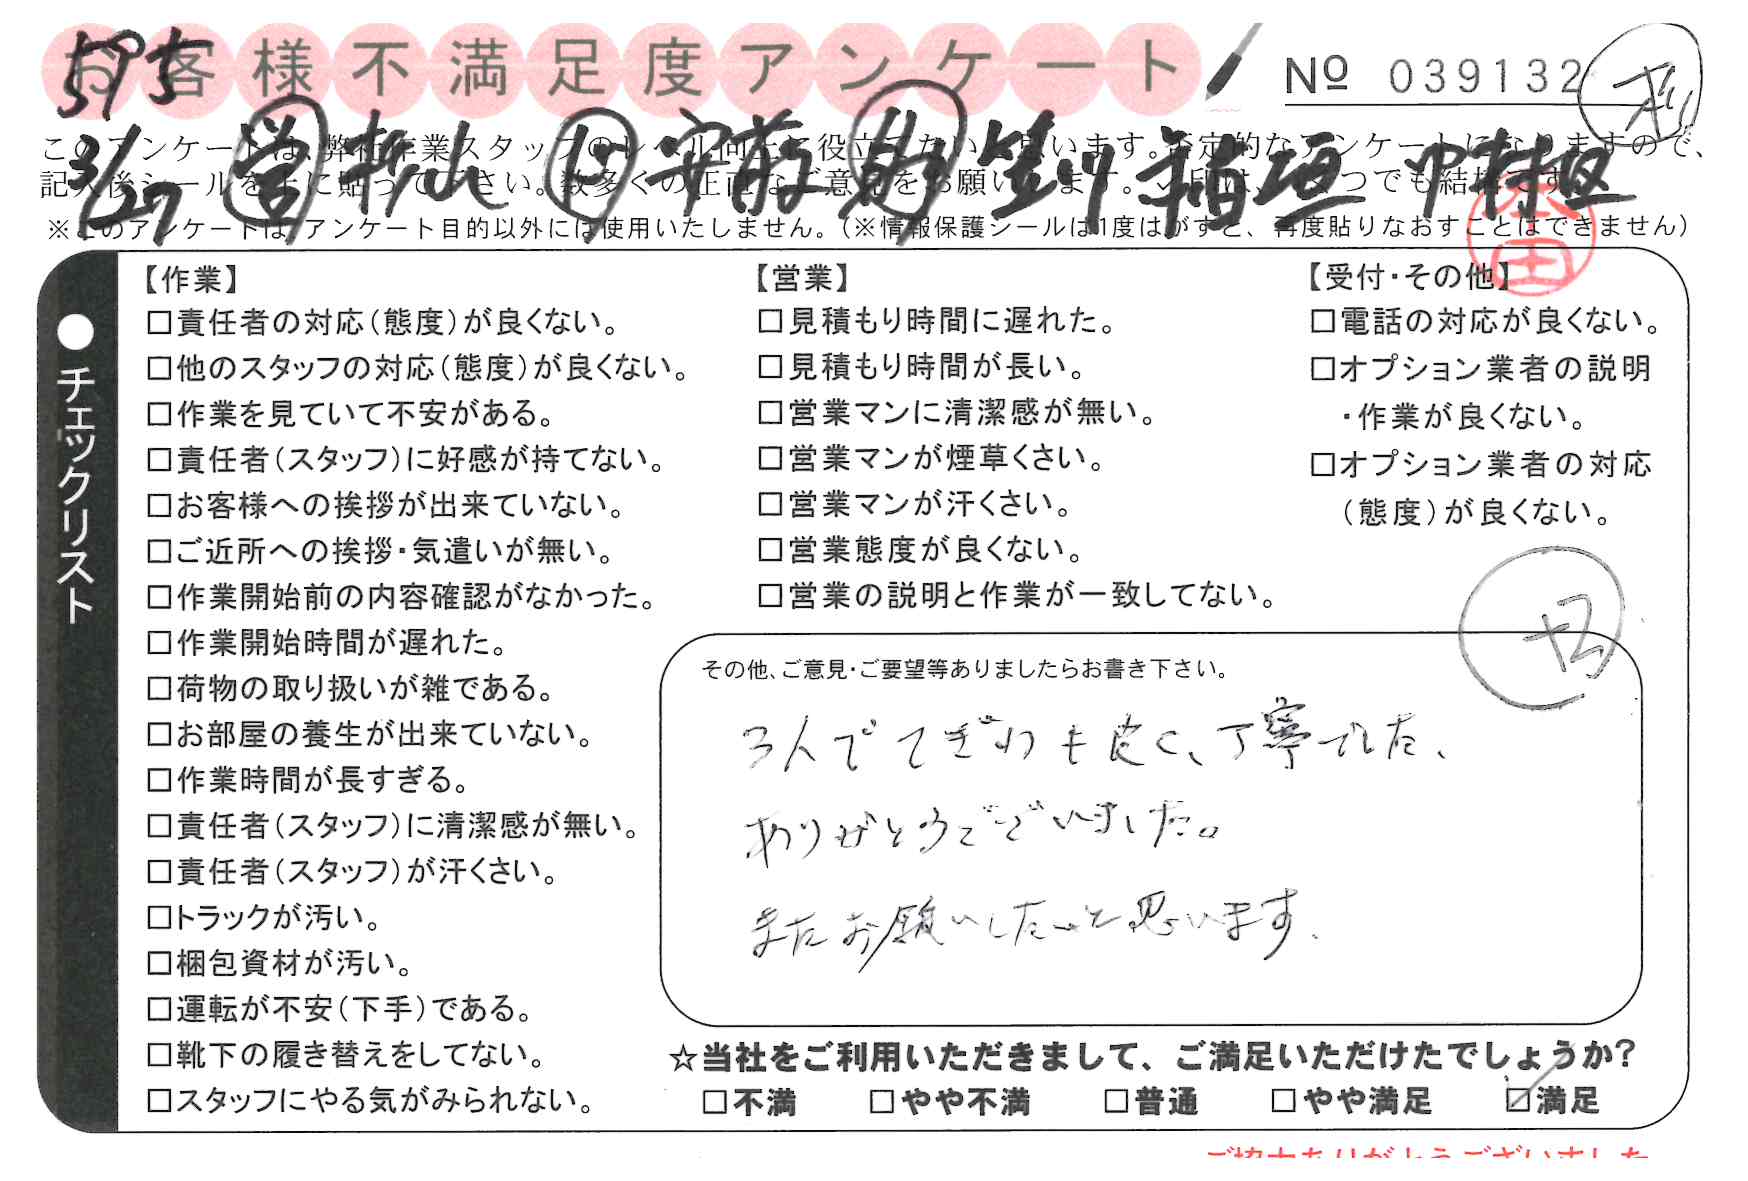 お客様不満足度アンケート
№ 039132
このアンケートは、弊社作業スタッフのレベル向上に役立てたいと思います。否定的なアンケートになりますので、
記入後シールを上に貼って下さい。数多くの正直なご意見をお願いします。レ印は、いくつでも結構です。
※このアンケートは、アンケート目的以外には使用いたしません。(※情報保護シールは1度はがすと、再度貼りなおすことはできません)
3/27 営 松山 中村区
●チェックリスト
【作業】
□責任者の対応(態度)が良くない。
□他のスタッフの対応(態度)が良くない。
□作業を見ていて不安がある。
□責任者(スタッフ)に好感が持てない。
□お客様への挨拶が出来ていない。
□ご近所への挨拶・気遣いが無い。
□作業開始前の内容確認がなかった。
□作業開始時間が遅れた。
□荷物の取り扱いが雑である。
□お部屋の養生が出来ていない。
□作業時間が長すぎる。
□責任者(スタッフ)に清潔感が無い。
□責任者(スタッフ)が汗くさい。
□トラックが汚い。
□梱包資材が汚い。
□運転が不安(下手)である。
□靴下の履き替えをしてない。
□スタッフにやる気がみられない。
【営業】
□見積もり時間に遅れた。
□見積もり時間が長い。
□営業マンに清潔感が無い。
□営業マンが煙草くさい。
□営業マンが汗くさい。
□営業態度が良くない。
□営業の説明と作業が一致してない。
【受付・その他】
□電話の対応が良くない。
□オプション業者の説明
・作業が良くない。
□オプション業者の対応
(態度)が良くない。
その他、ご意見・ご要望等ありましたらお書き下さい。
3人でてぎわも良く、丁寧でした、
ありがとうございました。
またお願いしたいと思います。
☆当社をご利用いただきまして、ご満足いただけたでしょうか?
□不満 □やや不満 □普通 □やや満足 ☑満足
ご協力ありがとうございました